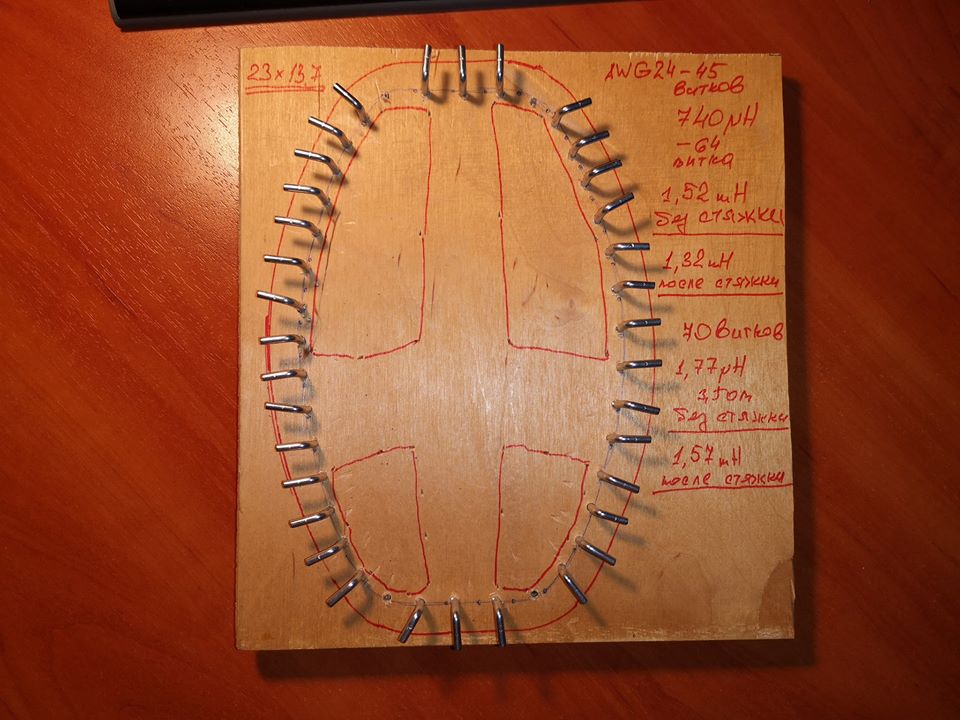 23×13,7
AWG24-45
витков
740μH
-64
витка
1,52mH
без стяжки
1,32mH
после стяжки
70 витков
1,77μH
без стяжки
1,57mH
после стяжки